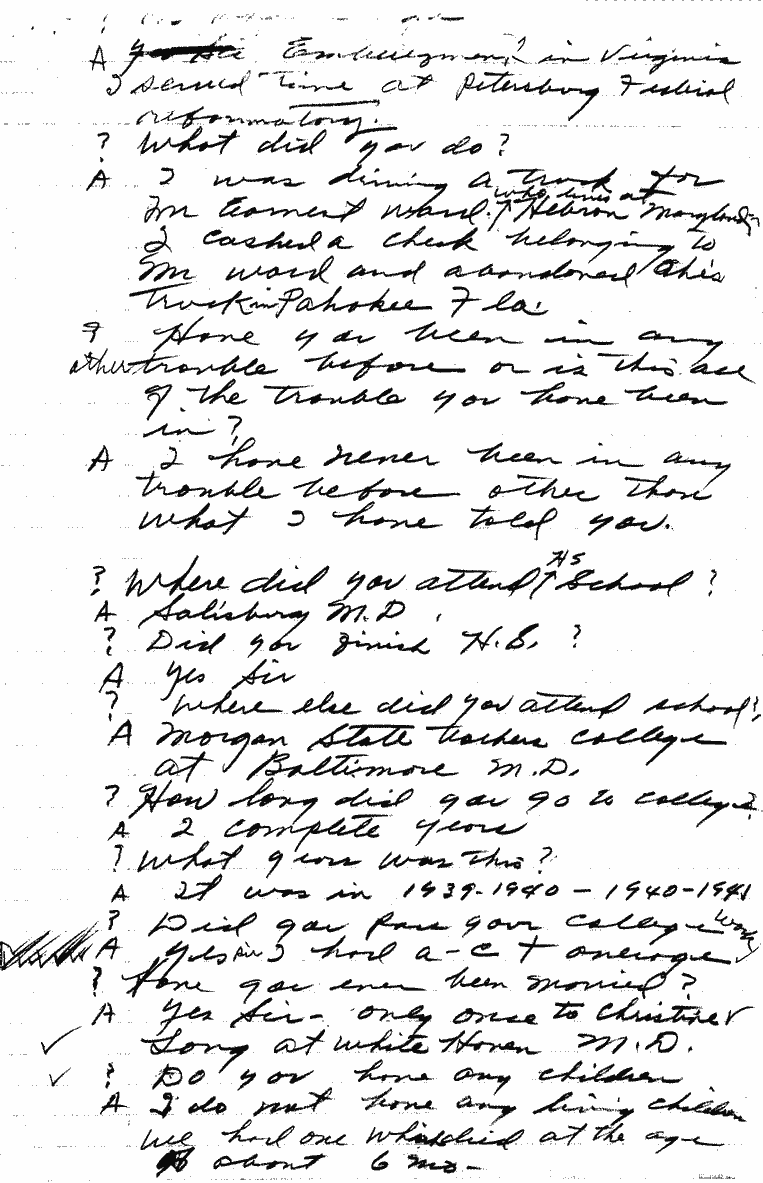 A Embezzlement in Virginia
I served time at Petersburg Federal
reformatory.
? What did you do?
A I was driving a truck for
Mr Earnest Ward. ↑ who lives at Hebron Maryland
I cashed a check belonging to
Mr Ward and abandoned his
Truck in Pahokee Fla.
? Have you been in any
other trouble before or is this all
of the trouble you have been
in?
A I have never been in any
trouble before other than
what I have told you.
? Where did you attend ↑ HS School?
A Salisbury M.D.
? Did you finish H.S. ?
A Yes Sir
? Where else did you attend school?
A Morgan State teachers college
at Baltimore M.D.
? How long did you go to college?
A 2 complete years
? What years was this?
A It was in 1939-1940 - 1940-1941
? Did you pass your college work
A Yes Sir I had a - C + average
? Have you ever been married?
A Yes Sir - only once to Christine
Long at White Haven M.D.
? Do you have any children
A I do not have any living children
we had one which died at the age
of about 6 mo -